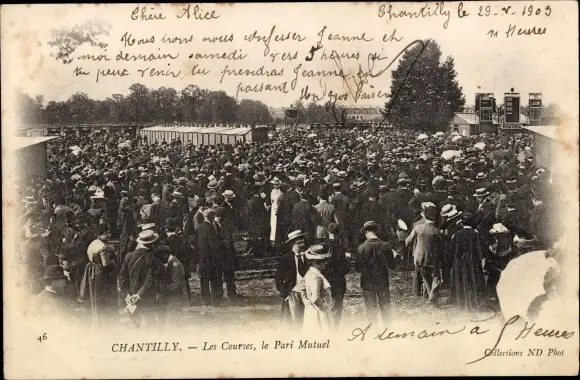 Chère Alice
Chantilly le 29-V-1903
11 Heures
Nous irons nous Jeanne et
moi demain samedi vers 3 heures
tu peux venir tu prendras Jeanne en
passant Bon gros Baiser
A demain à 5 Heures
46
CHANTILLY. — Les Courses, le Pari Mutuel
Collections ND Phot